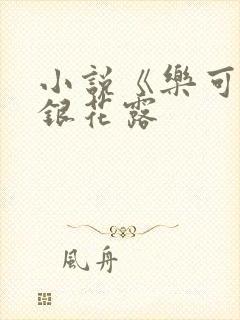 小說《樂可
銀花露
風舟